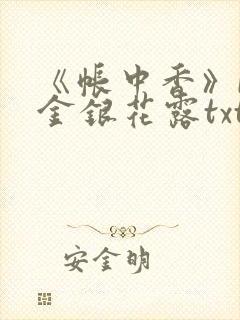 《帐中香》
金银花露txt
安金明